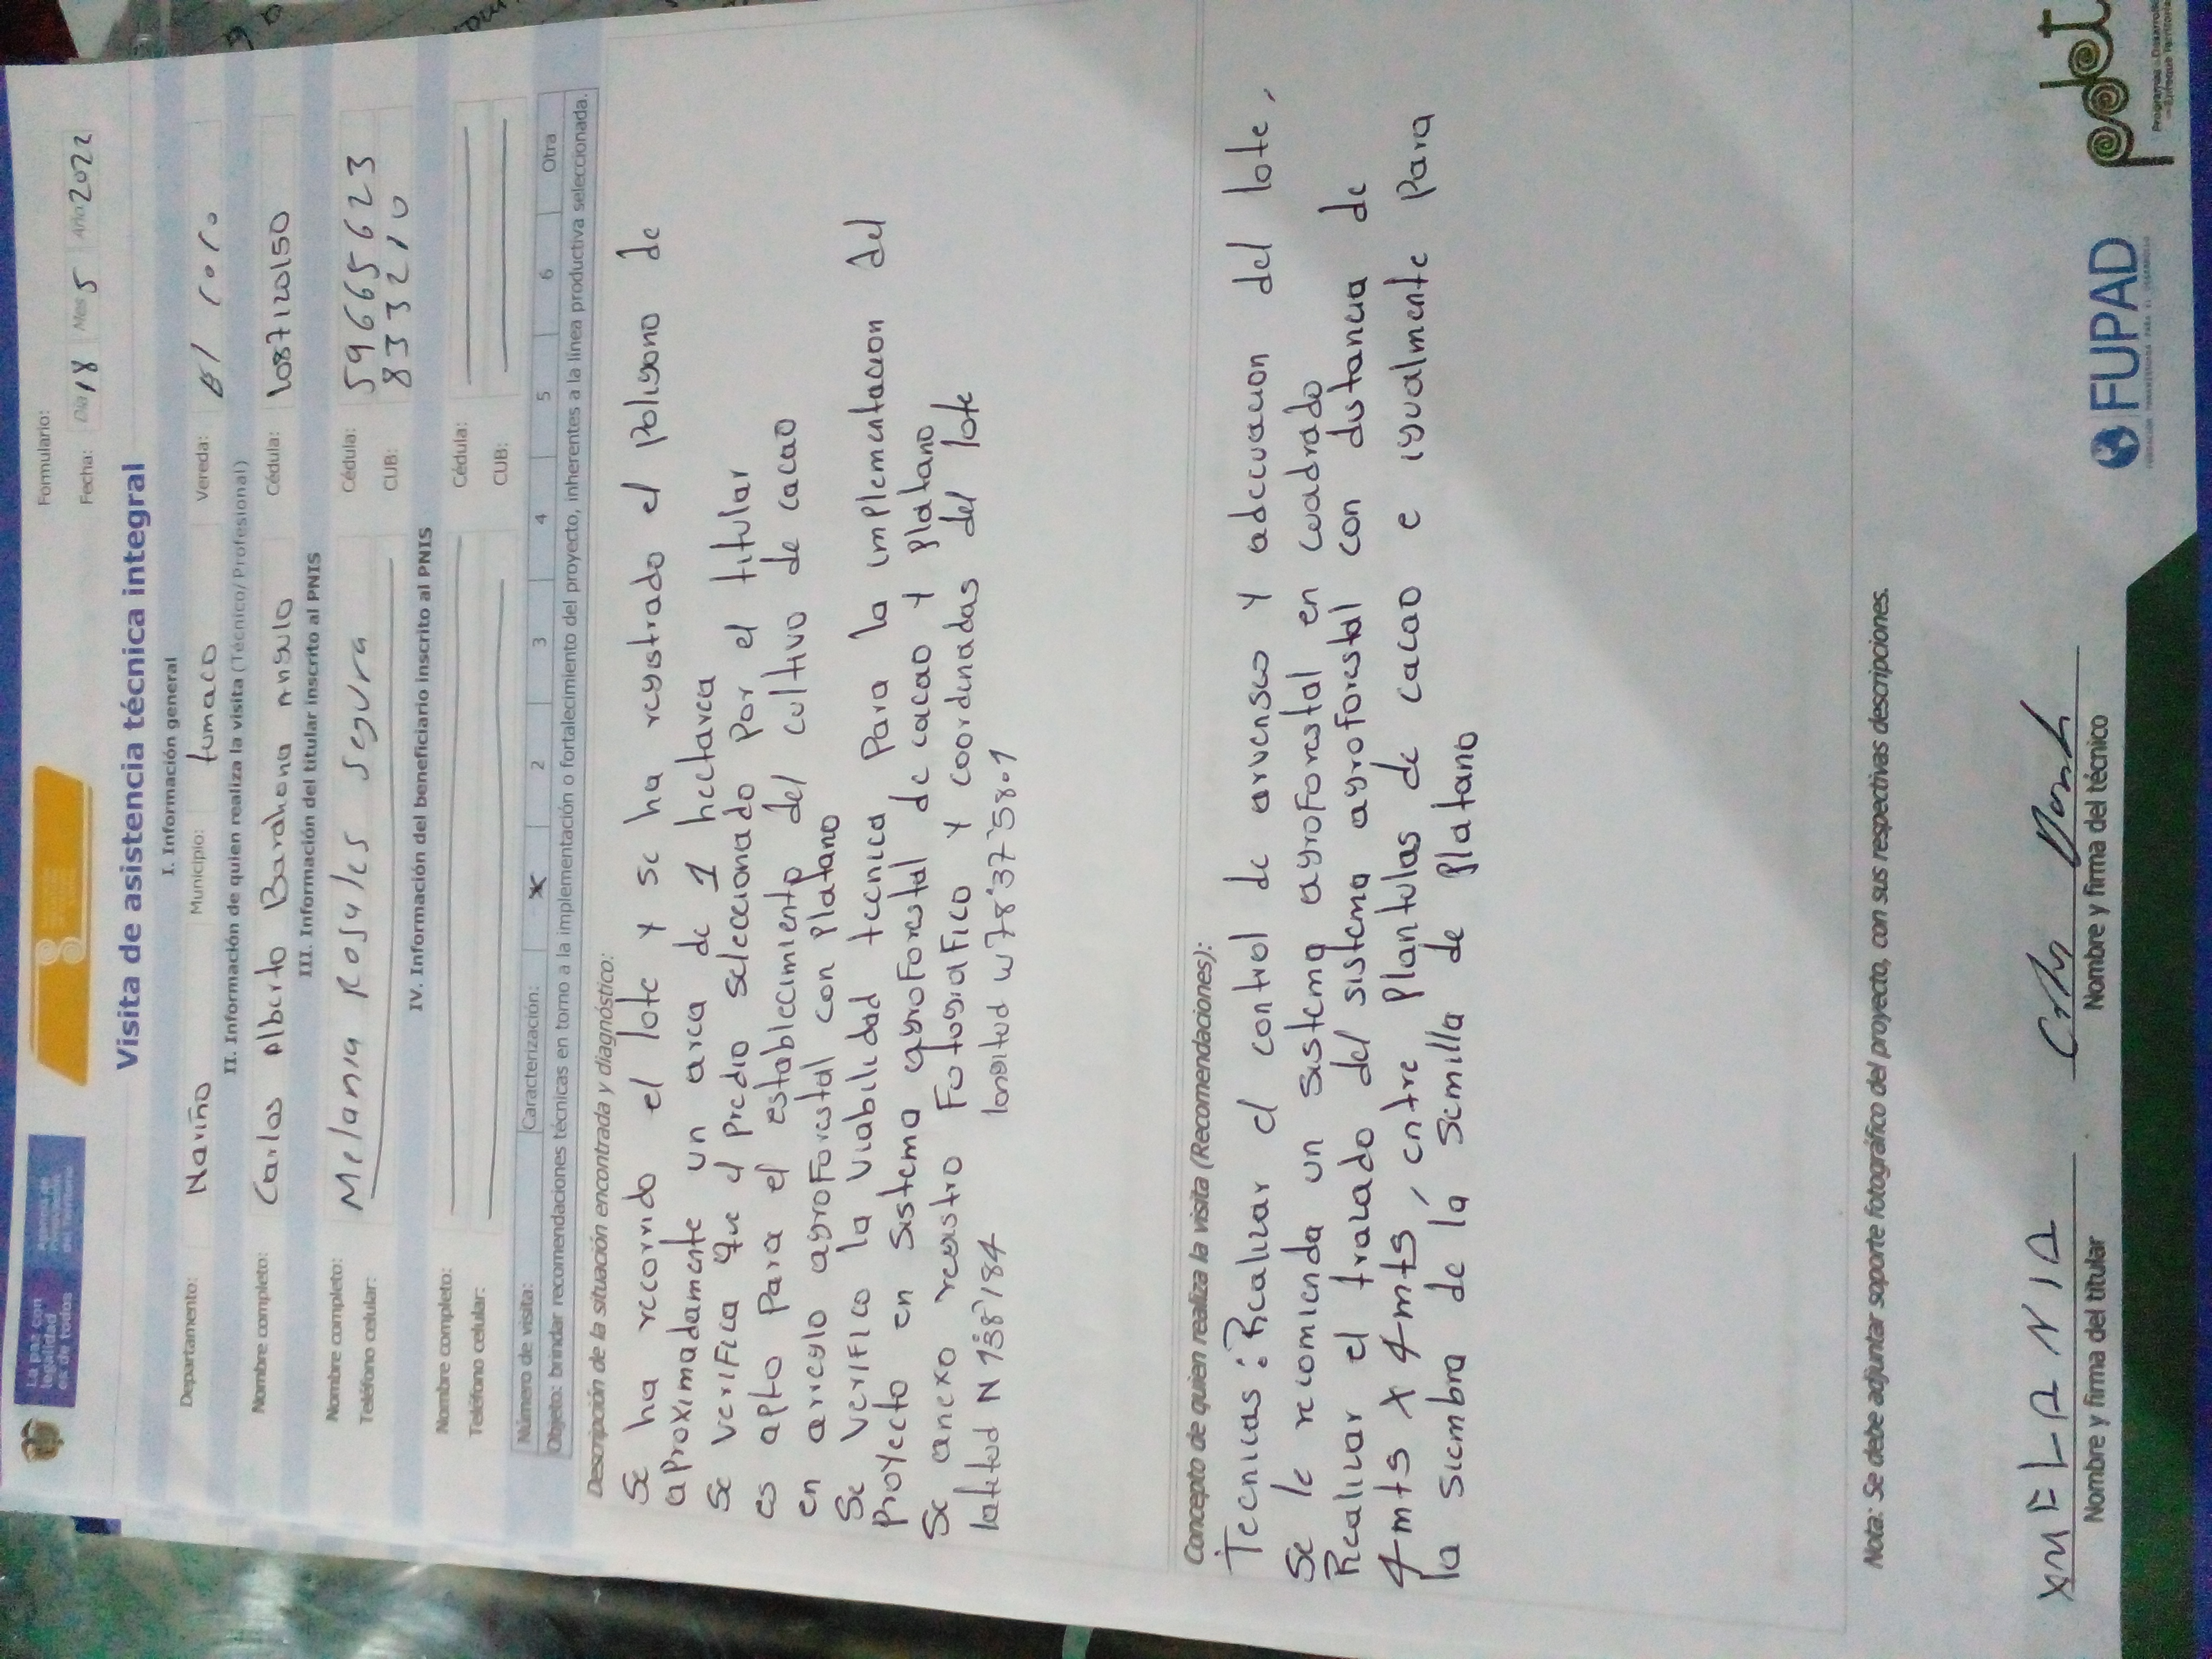 La paz con
legalidad
es de todos
Formulario:
Fecha: Día 18 Mes 5 Año 2022
Visita de asistencia técnica integral
I. Información general
Departamento: Nariño Municipio: tumaco Vereda: El Coro
II. Información de quien realiza la visita (Técnico/Profesional)
Nombre completo: Carlos Alberto Barahona Angulo Cédula: 1087120150
III. Información del titular inscrito al PNIS
Nombre completo: Melania Rosales Segura Cédula: 59665623
Teléfono celular: CUB: 8333210
IV. Información del beneficiario inscrito al PNIS
Nombre completo: Cédula:
Teléfono celular: CUB:
Número de visita: Caracterización: X 2 3 4 5 6 Otra
Objeto: brindar recomendaciones técnicas en torno a la implementación o fortalecimiento del proyecto, inherentes a la línea productiva seleccionada.
Descripción de la situación encontrada y diagnóstico:
Se ha recorrido el lote y se ha registrado el poligono de
aproximadamente un area de 1 hectarea
Se verifica que el predio seleccionado por el titular
es apto para el establecimiento del cultivo de cacao
en arreglo agroforestal con platano
Se verifico la viabilidad tecnica para la implementacion del
proyecto en sistema agroforestal de cacao y platano
Se anexo registro fotografico y coordenadas del lote
latitud N 1°38'184 longitud w 78°37'58.1
Concepto de quien realiza la visita (Recomendaciones):
Tecnicas: Realizar el control de arvenses y adecuacion del lote,
Se le recomienda un sistema agroforestal en cuadrado
Realizar el trazado del sistema agroforestal con distancia de
4mts x 4mts, entre plantulas de cacao e igualmente para
la siembra de la semilla de platano
Nota: Se debe adjuntar soporte fotográfico del proyecto, con sus respectivas descripciones.
XMELANIA
Nombre y firma del titular
Nombre y firma del técnico
FUPAD
pdet